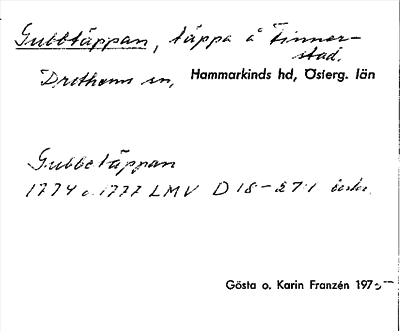 Gubbtäppan, täppa å Finner-
stad.
Drothems sn, Hammarkinds hd, Österg. län
Gubbetäppan
1774 o. 1777 LMV D 18-27:1 beskr.
Gösta o. Karin Franzén 1975